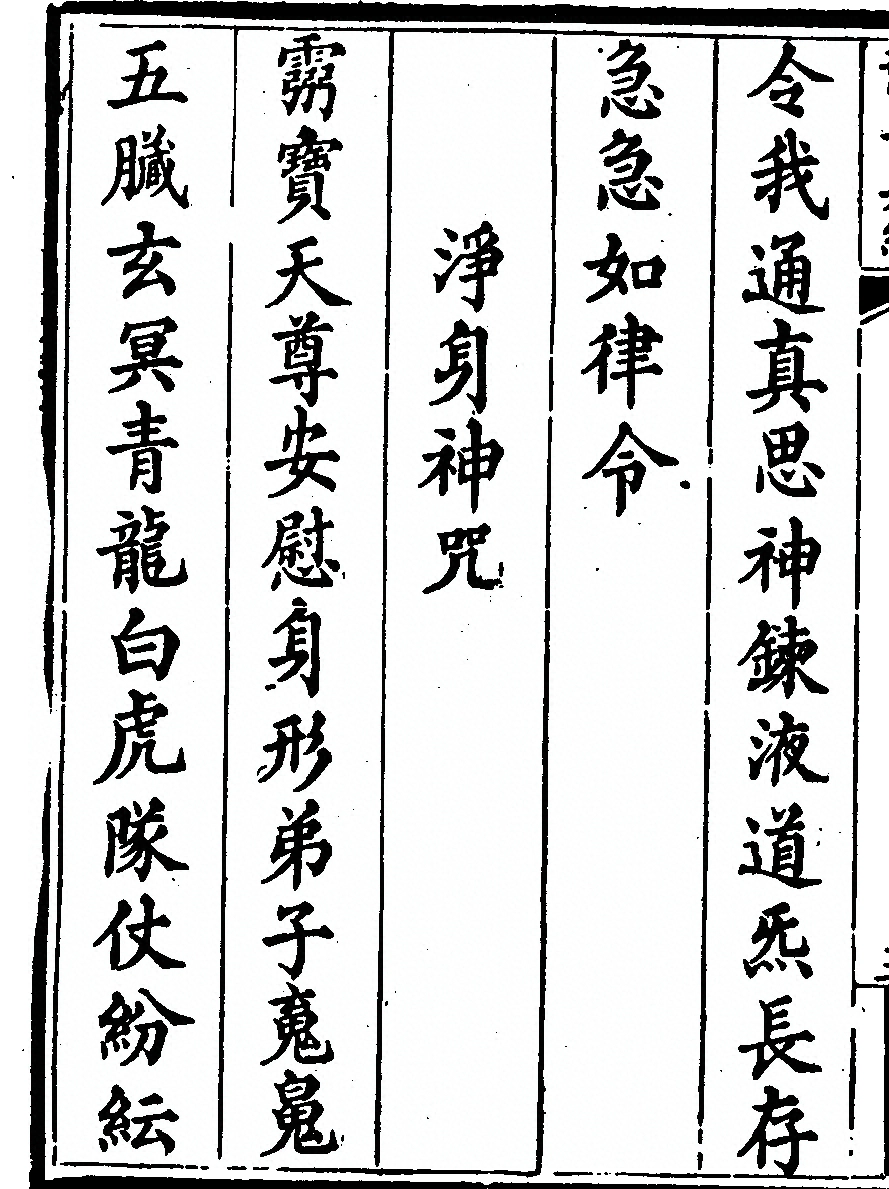 令我通真思神鍊液道炁長存
急急如律令
淨身神咒
靈寶天尊安慰身形弟子魂魄
五臟玄冥青龍白虎隊仗紛紜